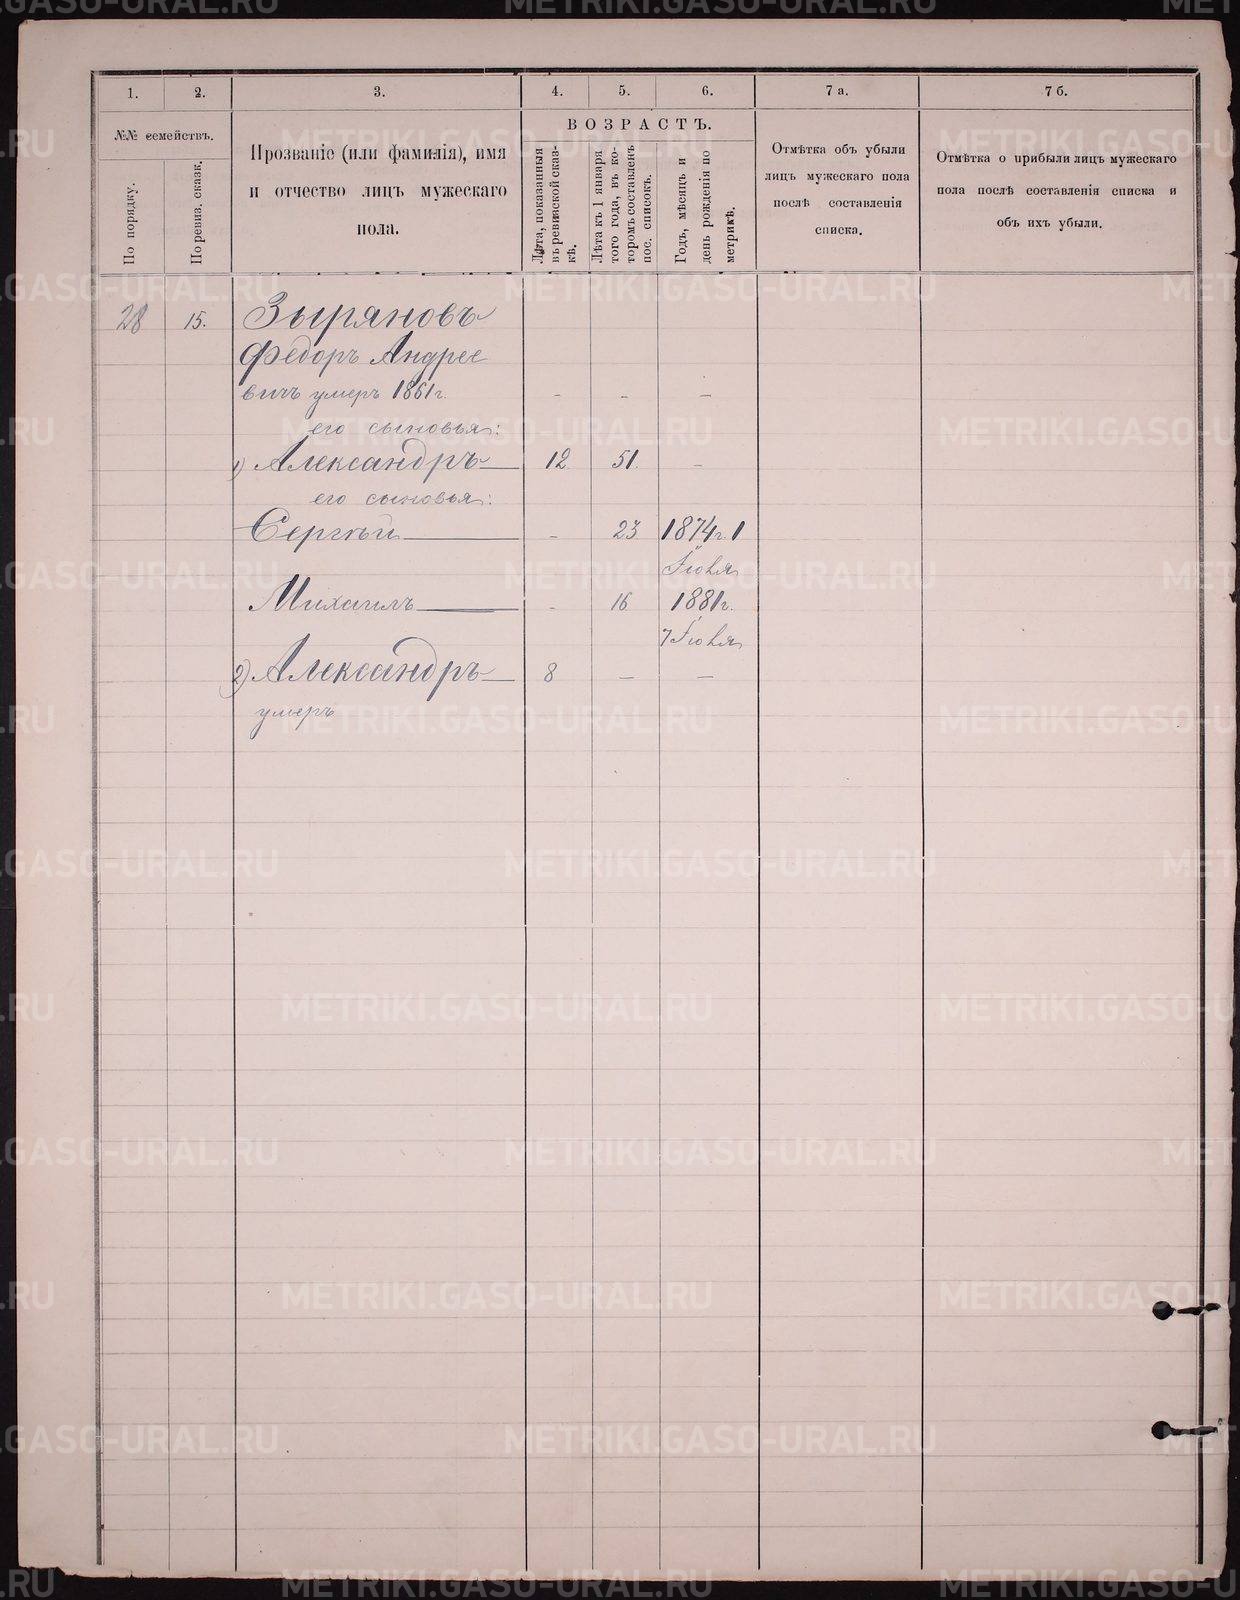 1. 2. 3. 4. 5. 6. 7 а. 7 б.
№№ семействъ.
По порядку.
По ревиз. сказк.
Прозваніе (или фамилія), имя
и отчество лицъ мужескаго
пола.
ВОЗРАСТЪ.
Лѣта, показанныя
въ ревизской сказ-
кѣ.
Лѣта къ 1 января
того года, въ ко-
торомъ составленъ
пос. списокъ.
Годъ, мѣсяцъ и
день рожденія по
метрикѣ.
Отмѣтка объ убыли
лицъ мужескаго пола
послѣ составленія
списка.
Отмѣтка о прибыли лицъ мужескаго
пола послѣ составленія списка и
объ ихъ убыли.
28 15. Зыряновъ
Федоръ Андрее
вичъ умеръ 1861 г. - - -
его сыновья:
1) Александръ 12 51. -
его сыновья:
Сергѣй - 23 1874 г. 1
Михаилъ - 16 1881 г.
7
2) Александръ 8 - -
умеръ
METRIKI.GASO-URAL.RU